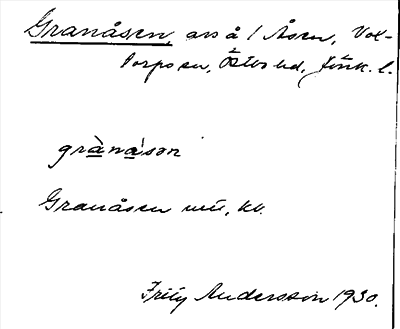 Granåsen, avs å / Åsen, Vox-
torps sn, Östbo hd, Jönk. l.
grànáson
Granåsen
Fritz Andersson 1930.